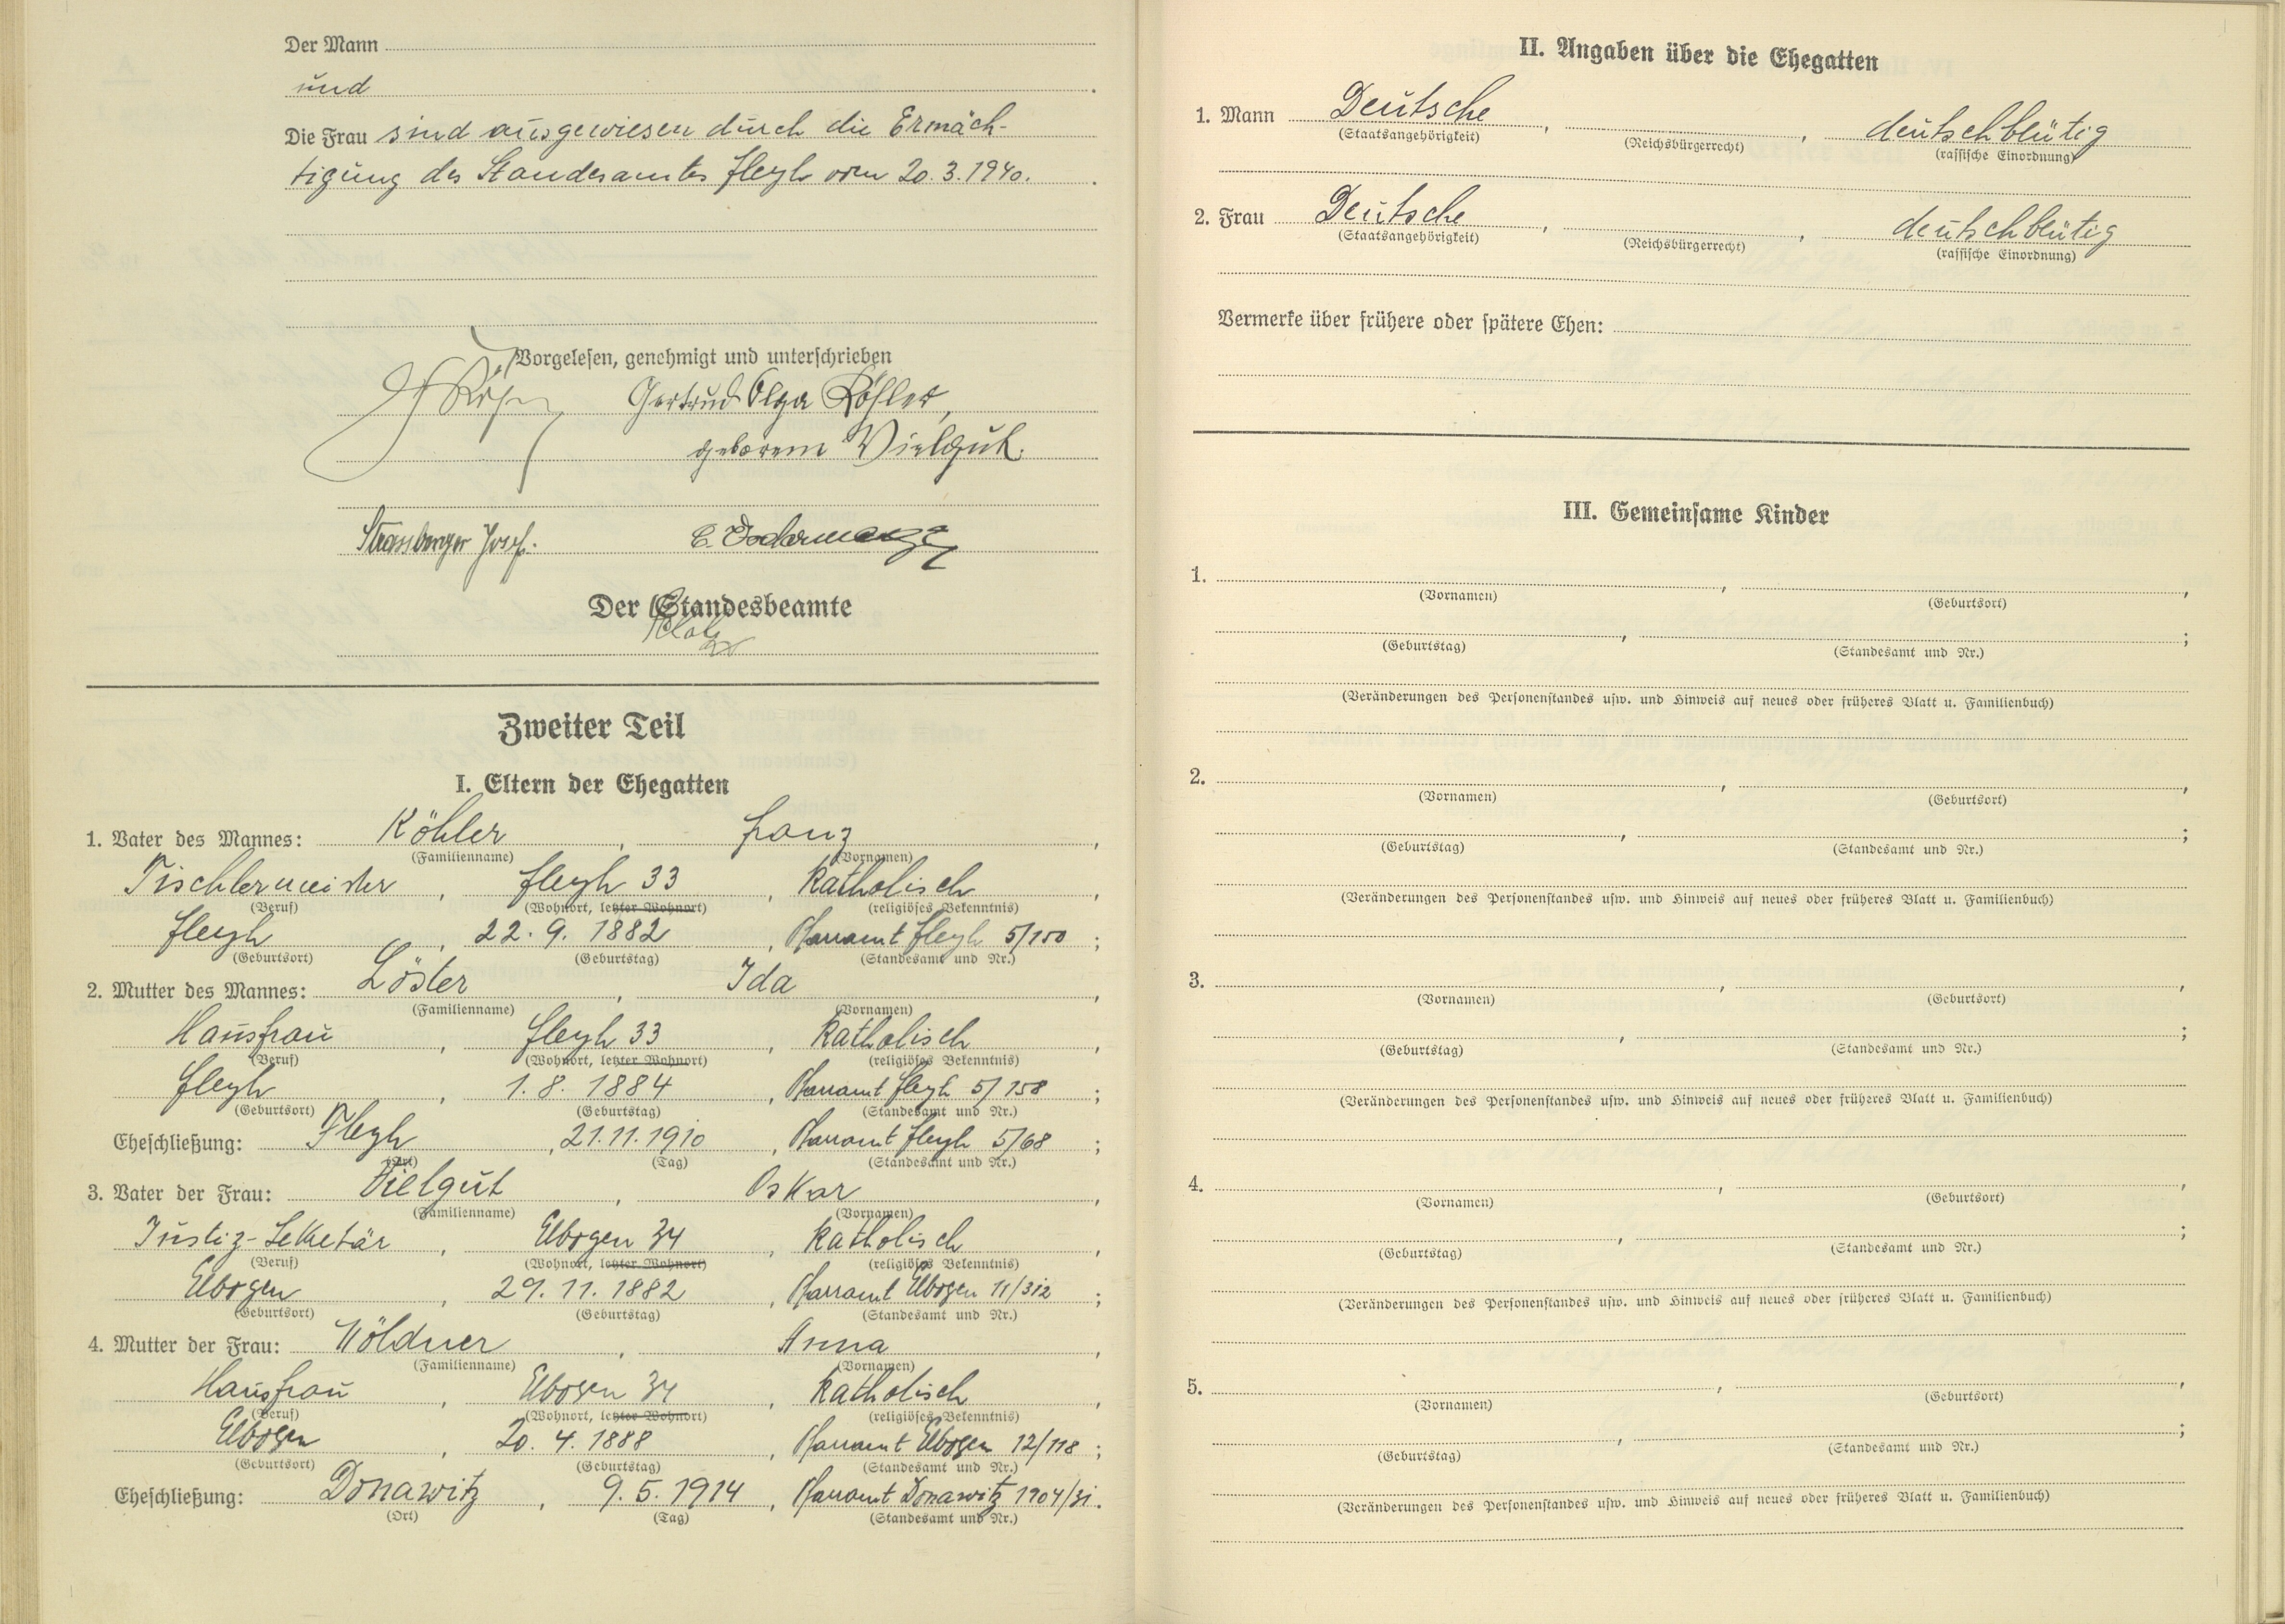 Der Mann
und
Die Frau sind ausgewiesen durch die Ermäch-
tigung des Standesamtes Fleyh vom 20.3.1940.
Vorgelesen, genehmigt und unterschrieben
Gertrud Olga Köhler,
geborene Vielgut.
Strassberger Josef.
Der Standesbeamte
Zweiter Teil
I. Eltern der Ehegatten
1. Vater des Mannes: Köhler, Franz,
(Familienname) (Vornamen)
Tischlermeister, Fleyh 33, katholisch,
(Beruf) (Wohnort, letzter Wohnort) (religiöses Bekenntnis)
Fleyh, 22.9.1882, Pfarramt Fleyh 5/150;
(Geburtsort) (Geburtstag) (Standesamt und Nr.)
2. Mutter des Mannes: Löster, Ida,
(Familienname) (Vornamen)
Hausfrau, Fleyh 33, katholisch,
(Beruf) (Wohnort, letzter Wohnort) (religiöses Bekenntnis)
Fleyh, 1.8.1884, Pfarramt Fleyh 5/158;
(Geburtsort) (Geburtstag) (Standesamt und Nr.)
Eheschließung: Fleyh, 21.11.1910, Pfarramt Fleyh 5/68;
(Ort) (Tag) (Standesamt und Nr.)
3. Vater der Frau: Vielgut, Oskar,
(Familienname) (Vornamen)
Justiz-Sekretär, Elbogen 34, katholisch,
(Beruf) (Wohnort, letzter Wohnort) (religiöses Bekenntnis)
Elbogen, 29.11.1882, Pfarramt Elbogen 11/312;
(Geburtsort) (Geburtstag) (Standesamt und Nr.)
4. Mutter der Frau: Wöldner, Anna,
(Familienname) (Vornamen)
Hausfrau, Elbogen 34, katholisch,
(Beruf) (Wohnort, letzter Wohnort) (religiöses Bekenntnis)
Elbogen, 20.4.1888, Pfarramt Elbogen 12/118;
(Geburtsort) (Geburtstag) (Standesamt und Nr.)
Eheschließung: Donawitz, 9.5.1914, Pfarramt Donawitz 1904/31.
(Ort) (Tag) (Standesamt und Nr.)
II. Angaben über die Ehegatten
1. Mann Deutsche, , deutschblütig
(Staatsangehörigkeit) (Reichsbürgerrecht) (rassische Einordnung)
2. Frau Deutsche, , deutschblütig
(Staatsangehörigkeit) (Reichsbürgerrecht) (rassische Einordnung)
Vermerke über frühere oder spätere Ehen:
III. Gemeinsame Kinder
1. , ,
(Vornamen) (Geburtsort)
, ;
(Geburtstag) (Standesamt und Nr.)
(Veränderungen des Personenstandes usw. und Hinweis auf neues oder früheres Blatt u. Familienbuch)
2. , ,
(Vornamen) (Geburtsort)
, ;
(Geburtstag) (Standesamt und Nr.)
(Veränderungen des Personenstandes usw. und Hinweis auf neues oder früheres Blatt u. Familienbuch)
3. , ,
(Vornamen) (Geburtsort)
, ;
(Geburtstag) (Standesamt und Nr.)
(Veränderungen des Personenstandes usw. und Hinweis auf neues oder früheres Blatt u. Familienbuch)
4. , ,
(Vornamen) (Geburtsort)
, ;
(Geburtstag) (Standesamt und Nr.)
(Veränderungen des Personenstandes usw. und Hinweis auf neues oder früheres Blatt u. Familienbuch)
5. , ,
(Vornamen) (Geburtsort)
, ;
(Geburtstag) (Standesamt und Nr.)
(Veränderungen des Personenstandes usw. und Hinweis auf neues oder früheres Blatt u. Familienbuch)